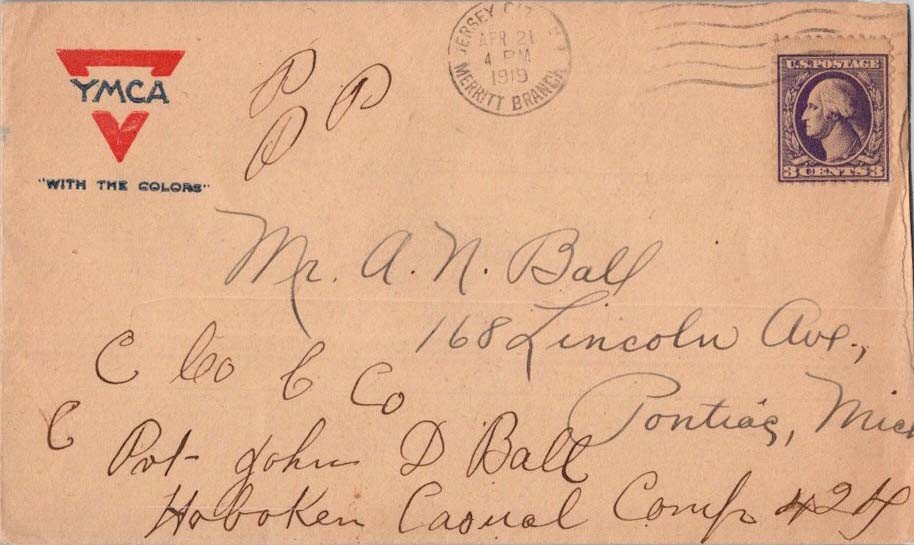 YMCA
"WITH THE COLORS"
P
P
P
JERSEY CITY
APR 21
4 PM
1919
MERRITT BRANCH
U.S. POSTAGE
3 CENTS 3
Mr. A. N. Ball
168 Lincoln Ave.,
Pontiac, Mich
C Co C Co
C
Pvt- John D Ball
Hoboken Casual Comp 424